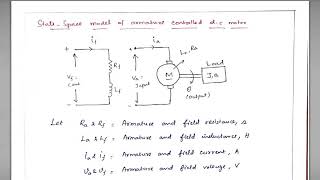 State-Space model of armature controlled d.c motor
+ if
ia
+
La, Ra
Rf
Vf =
Const
Va =
Input
M
Load
J,B
Lf
θ
(output)
Let Ra & Rf = Armature and field resistance, Ω
La & Lf = Armature and field inductance, H
Ia & if = Armature and field current, A
Va & Vf = Armature and field voltage, V